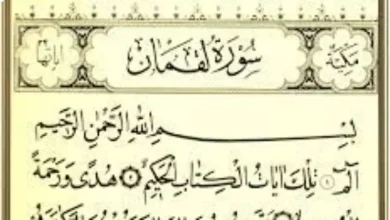 مكية سورة لقمان
بسم الله الرحمن الرحيم
الم ١ تلك ءايات الكتاب الحكيم ٢ هدى ورحمة